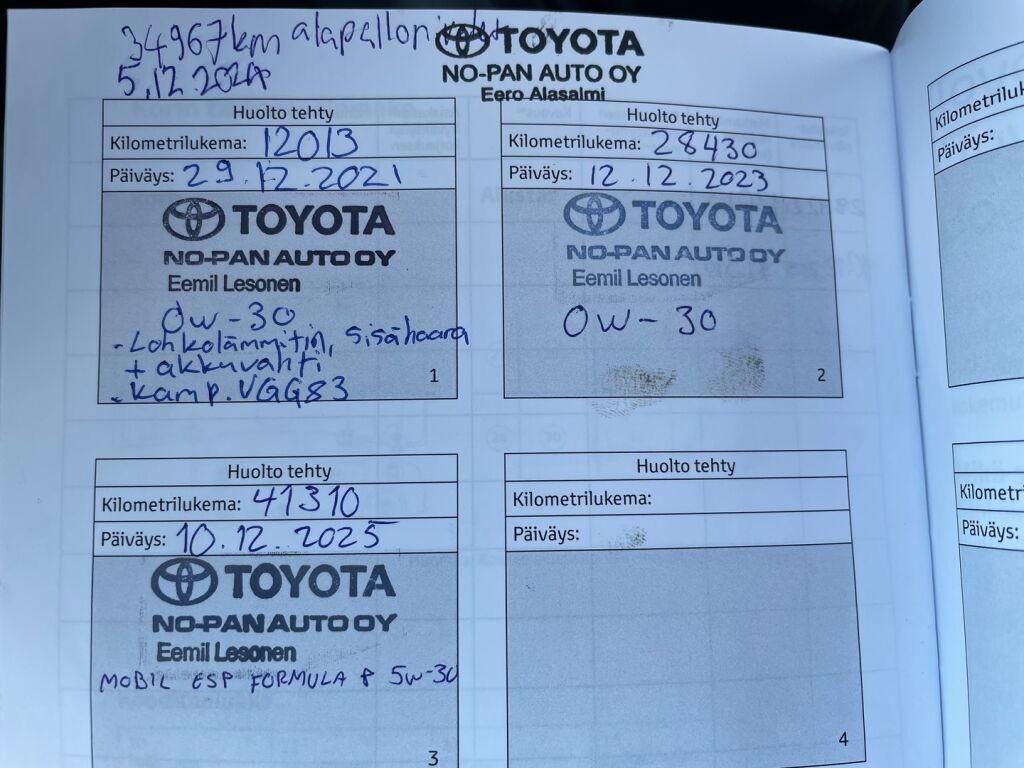 34967km alapallon
TOYOTA
5.12.2024
NO-PAN AUTO OY
Eero Alasalmi
Huolto tehty
Kilometrilukema: 12013
Päiväys: 29.12.2021
TOYOTA
NO-PAN AUTO OY
Eemil Lesonen
0w-30
- Lohkolämmitin, sisähaara
+ akkuvahti
- kamp. VGG83
1
Huolto tehty
Kilometrilukema: 28430
Päiväys: 12.12.2023
TOYOTA
NO-PAN AUTO OY
Eemil Lesonen
0W-30
2
Huolto tehty
Kilometrilukema: 41310
Päiväys: 10.12.2025
TOYOTA
NO-PAN AUTO OY
Eemil Lesonen
MOBIL ESP FORMULA P 5w-30
3
Huolto tehty
Kilometrilukema:
Päiväys:
4
Päiväys:
Päiväys: